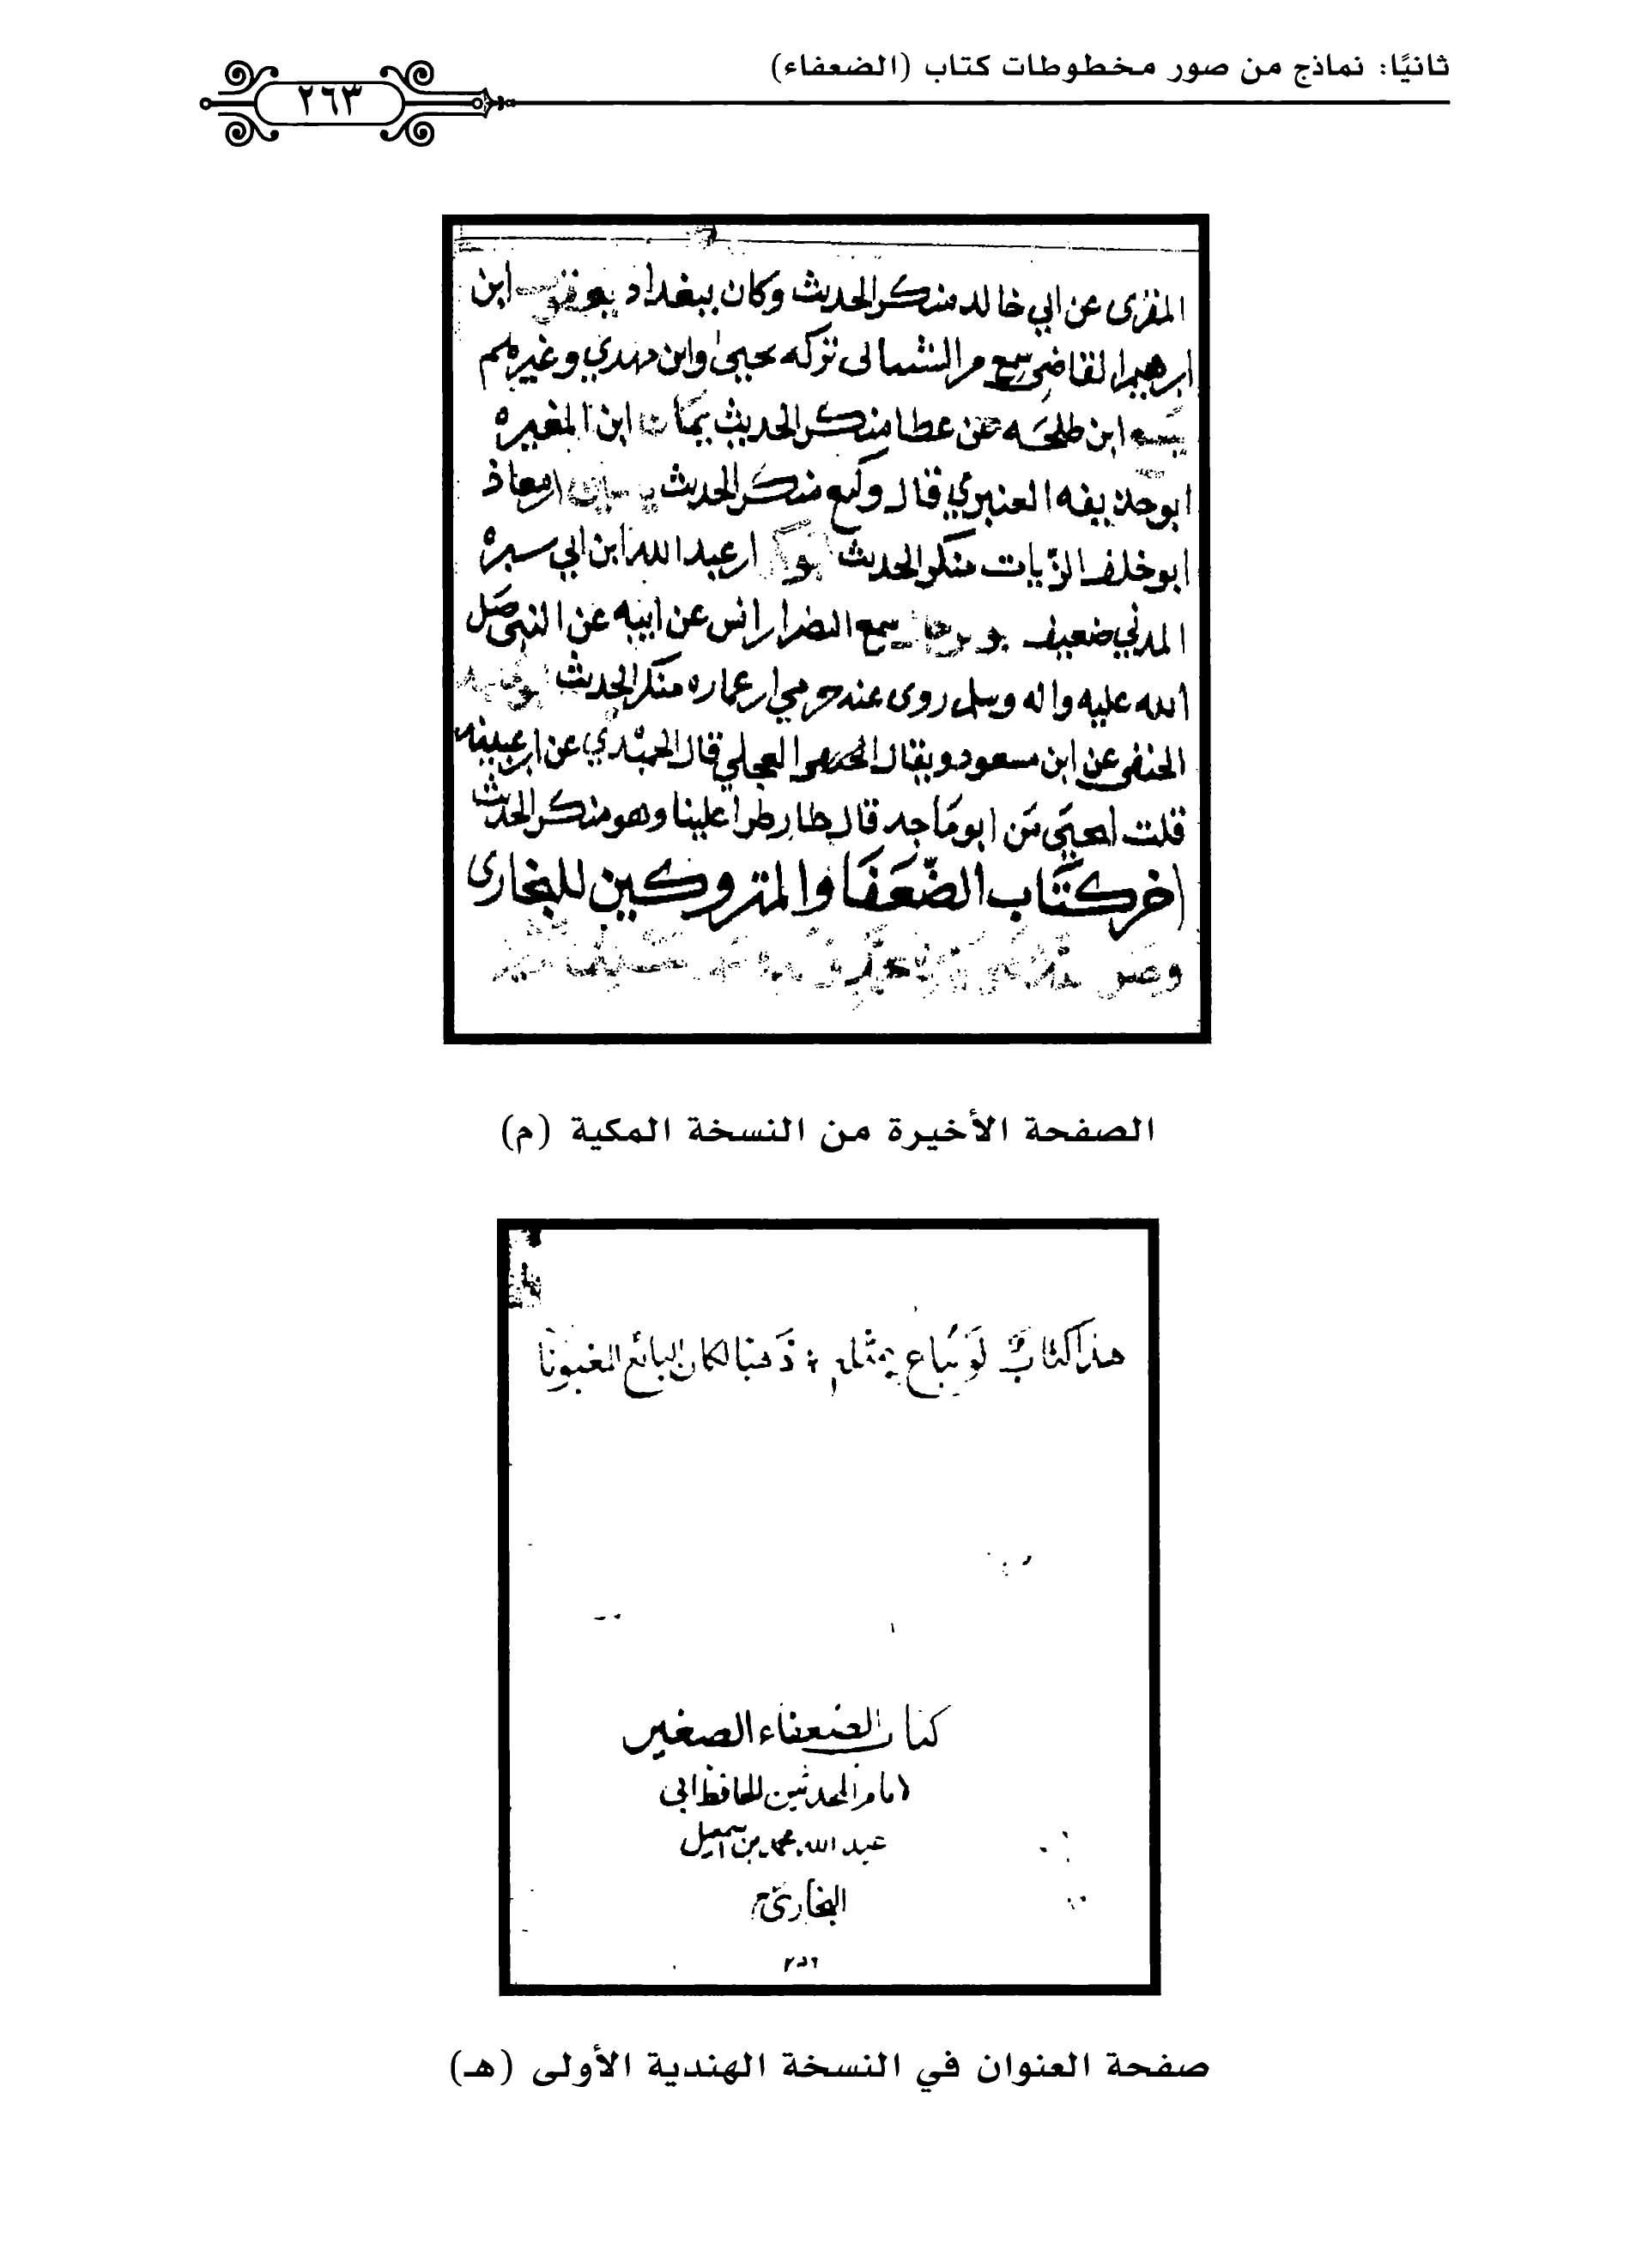 ثانيًا: نماذج من صور مخطوطات كتاب (الضعفاء)
٢٦٣
المقرى عن ابي خالد منكر الحديث وكان ببغداد يعقوب ابن
ابرهيم القاضي سمع من الشيبانى تركه يحيى وابن مهدي وغيرهم
ابن طلحه عن عطا منكر الحديث يمان ابن المغيره
ابو حذيفه العنبري قال وكيع منكر الحديث ياسين ابن معاذ
ابو خلف الزيات منكر الحديث ابو بكر ابن عبد الله ابن ابي سبره
المدني ضعيف سمع النضر ابن انس عن ابيه عن النبي صلى
الله عليه واله وسلم روى عنه حرمي ابن عماره منكر الحديث
الحنفي عن ابن مسعود ويقال العجلي قال الحميدي عن ابن عيينه
قلت ليحيى من ابو ماجد قال طار طرا علينا وهو منكر الحديث
اخر كتاب الضعفا والمتروكين للبخارى
الصفحة الأخيرة من النسخة المكية (م)
هذا كتاب لو يباع بمثله ؛ ذهبا لكان البائع المغبونا
كتاب الضعفاء الصغير
امام المحدثين للحافظ ابى
عبد الله محمد بن اسمعيل
البخاري
٢٥٦
صفحة العنوان في النسخة الهندية الأولى (هـ)